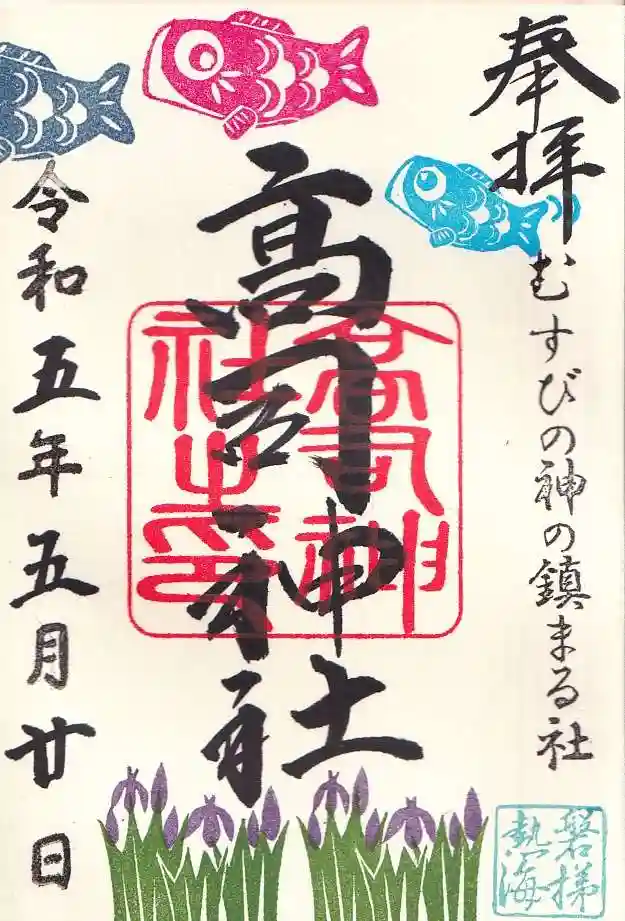 奉拝
むすびの神の鎮まる社
高司神社
高司神社之印
令和五年五月廿日
磐梯
熱海